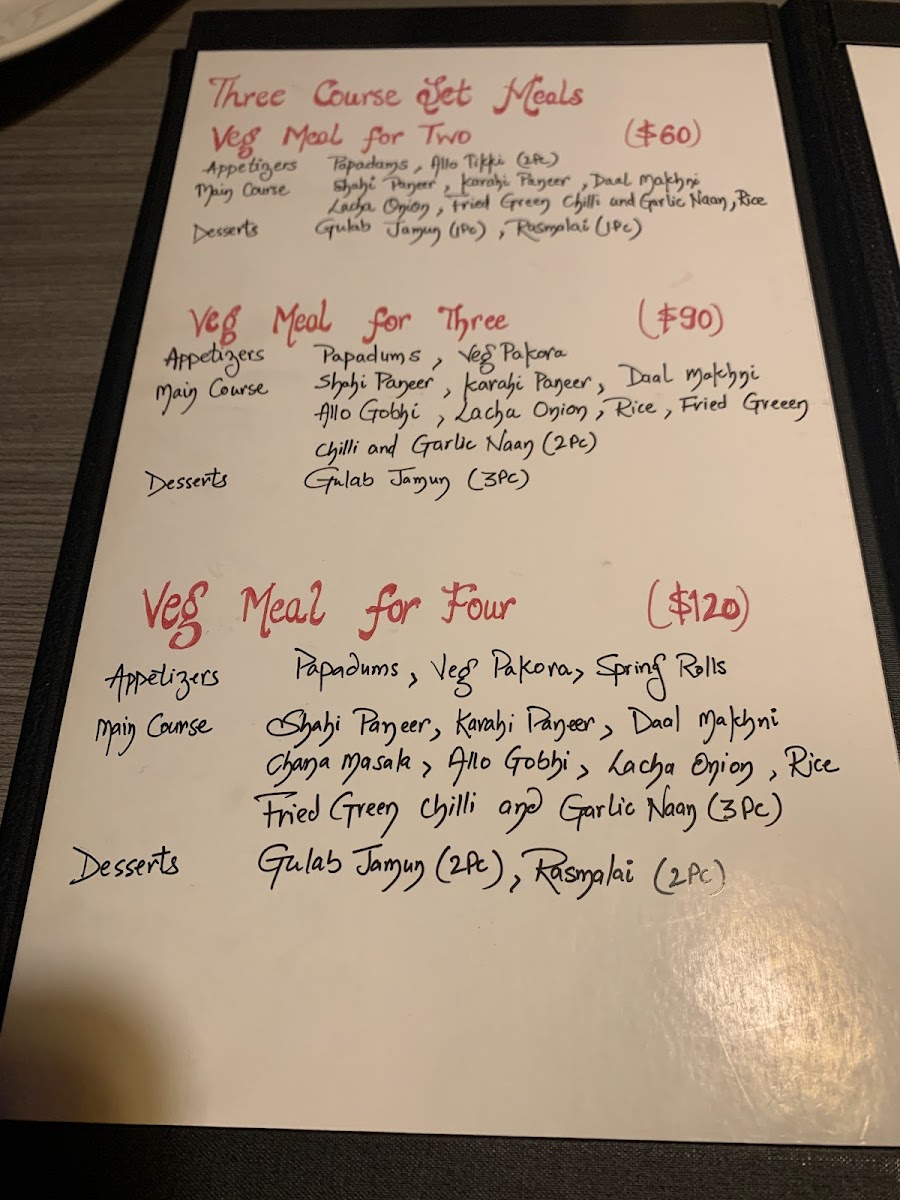 Three Course Set Meals
Veg Meal for Two ($60)
Appetizers Papadams, Allo Tikki (2Pc)
Main Course Shahi Paneer, Karahi Paneer, Daal Makhni
Lacha Onion, Fried Green Chilli and Garlic Naan, Rice
Desserts Gulab Jamun (1Pc), Rasmalai (1Pc)
Veg Meal for Three ($90)
Appetizers Papadums, Veg Pakora
Main Course Shahi Paneer, Karahi Paneer, Daal Makhni
Allo Gobhi, Lacha Onion, Rice, Fried Greeen
Chilli and Garlic Naan (2Pc)
Desserts Gulab Jamun (3Pc)
Veg Meal for Four ($120)
Appetizers Papadums, Veg Pakora, Spring Rolls
Main Course Shahi Paneer, Karahi Paneer, Daal Makhni
Chana Masala, Allo Gobhi, Lacha Onion, Rice
Fried Green Chilli and Garlic Naan (3Pc)
Desserts Gulab Jamun (2Pc), Rasmalai (2Pc)